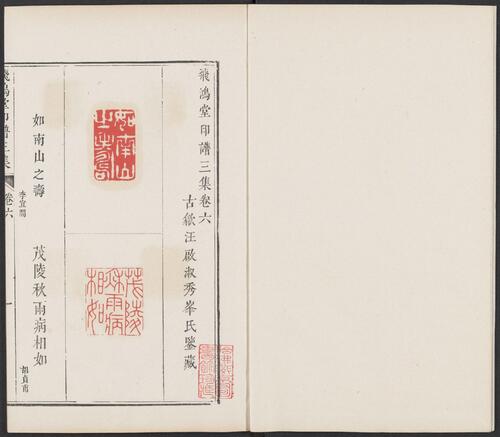 飛鴻堂印譜三集卷六
古歙汪啟淑秀峯氏鑒藏
如南山之壽
茂陵秋雨病相如
如南山之壽
李宜開
茂陵秋雨病相如
胡貞甫
飛鴻堂印譜三集
卷六
一